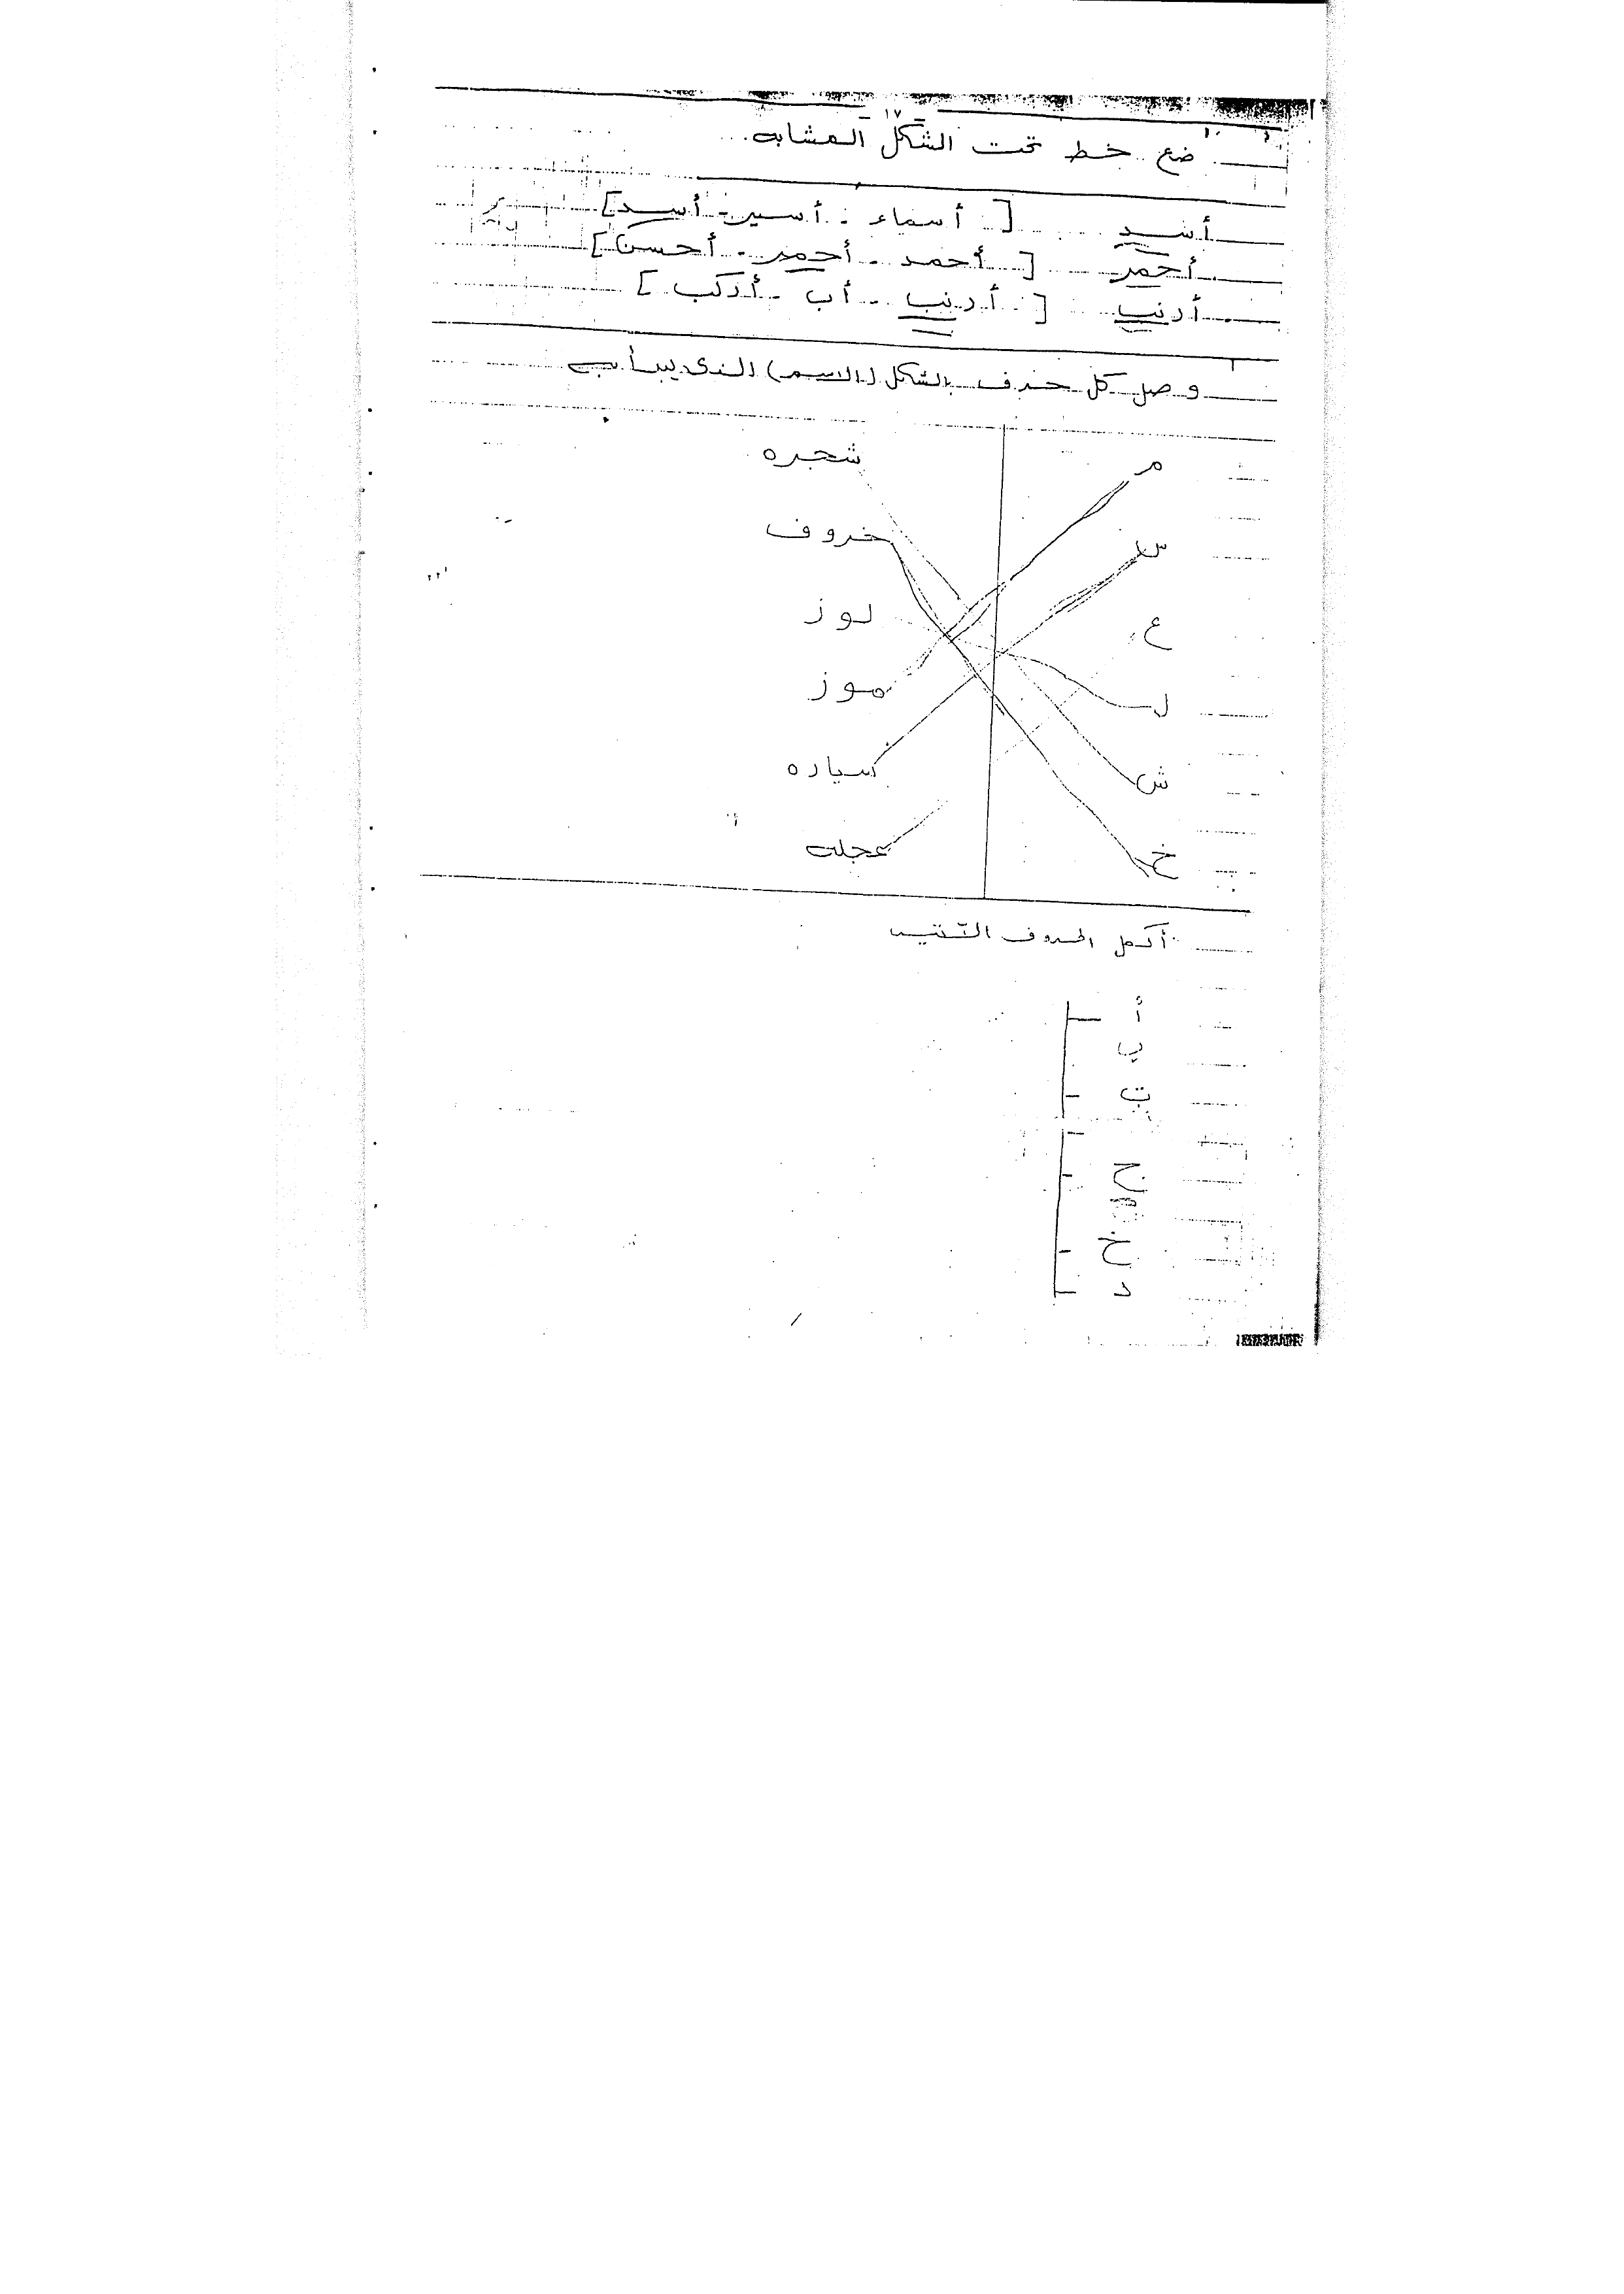 - ١٧ -
ضع خط تحت الشكل المشابه
أسد [ أسماء - أسير - أسد ]
أحمر [ أحمد - أحمر - أحسن ]
أرنب [ أرنب - أب - أركب ]
وصل كل حرف بالشكل (الاسم) الذى يبدأ به
م شجره
س خروف
ع لوز
ل موز
ش سياره
خ عجلة
أكمل الحروف
أ
ب
ت
ج
خ
د